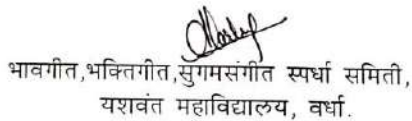 भावगीत,भक्तिगीत,सुगमसंगीत स्पर्धा समिती,
यशवंत महाविद्यालय, वर्धा.